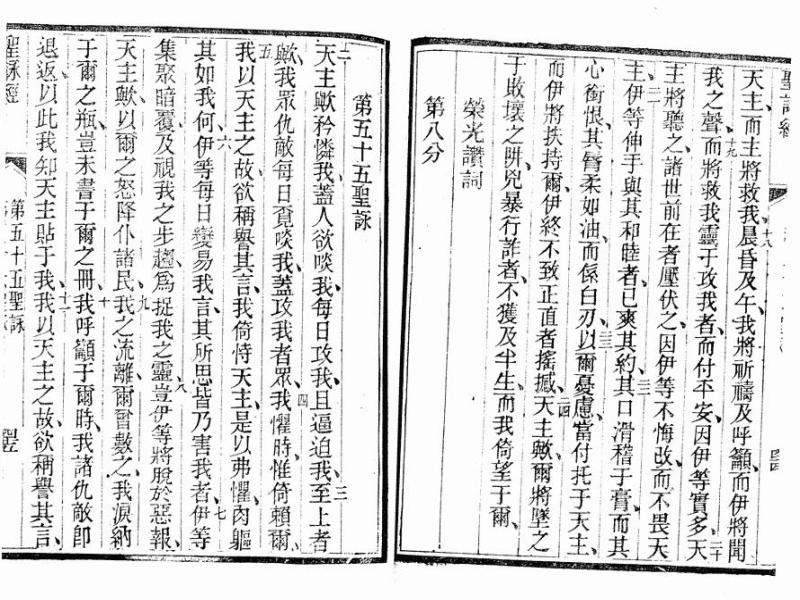 聖詠經
天主、而主將救我、晨昏及午、我將祈禱及呼籲、而伊將聞
十八
我之聲、而將救我靈于攻我者、而付平安、因伊等實多、天
十九
二十
主將聽之、諸世前在者壓伏之、因伊等不悔改、而不畏天
主、伊等伸手與其和睦者、已爽其約、其口滑稽于膏、而其
二一
二二
心銜恨、其言柔如油、而係白刃、以爾憂慮、當付托于天主、
二三
而伊將扶持爾、伊終不致正直者搖撼、天主歟、爾將墜之
二四
于敗壞之阱、兇暴行詐者、不獲及半生、而我倚望于爾、
榮光讚詞
第八分
第五十五聖詠
二
天主歟、矜憐我、蓋人欲啖我、每日攻我、且逼迫我、至上者
三
歟、我眾仇敵、每日覔啖我、蓋攻我者眾、我懼時、惟倚賴爾、
四
五
我以天主之故、欲稱譽其言、我倚恃天主、是以弗懼、肉軀
其如我何、伊等每日變易我言、其所思皆乃害我者、伊等
六
七
集聚暗覆、及視我之步趨、為捉我之靈、豈伊等將脫於惡報、
八
天主歟、以爾之怒、降仆諸民、我之流離、爾曾數之、我淚納
九
于爾之瓶、豈未書于爾之冊、我呼籲于爾時、我諸仇敵即
十
退返、以此我知天主貼于我、我以天主之故、欲稱譽其言、
十一
聖詠經
第五十五聖詠